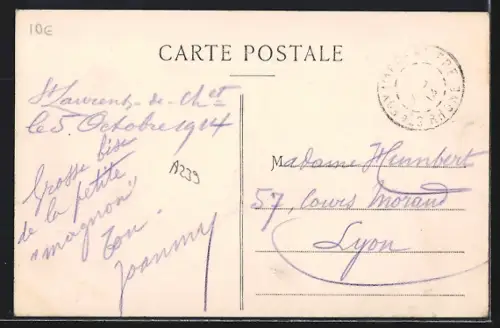 10€
CARTE POSTALE
St Laurent-de-Ch.et
le 5. Octobre 1914
Grosse bise
de la petite
"magnon"
Ton
Joanny
A239
Madame Humbert
57, Cours Morand
Lyon